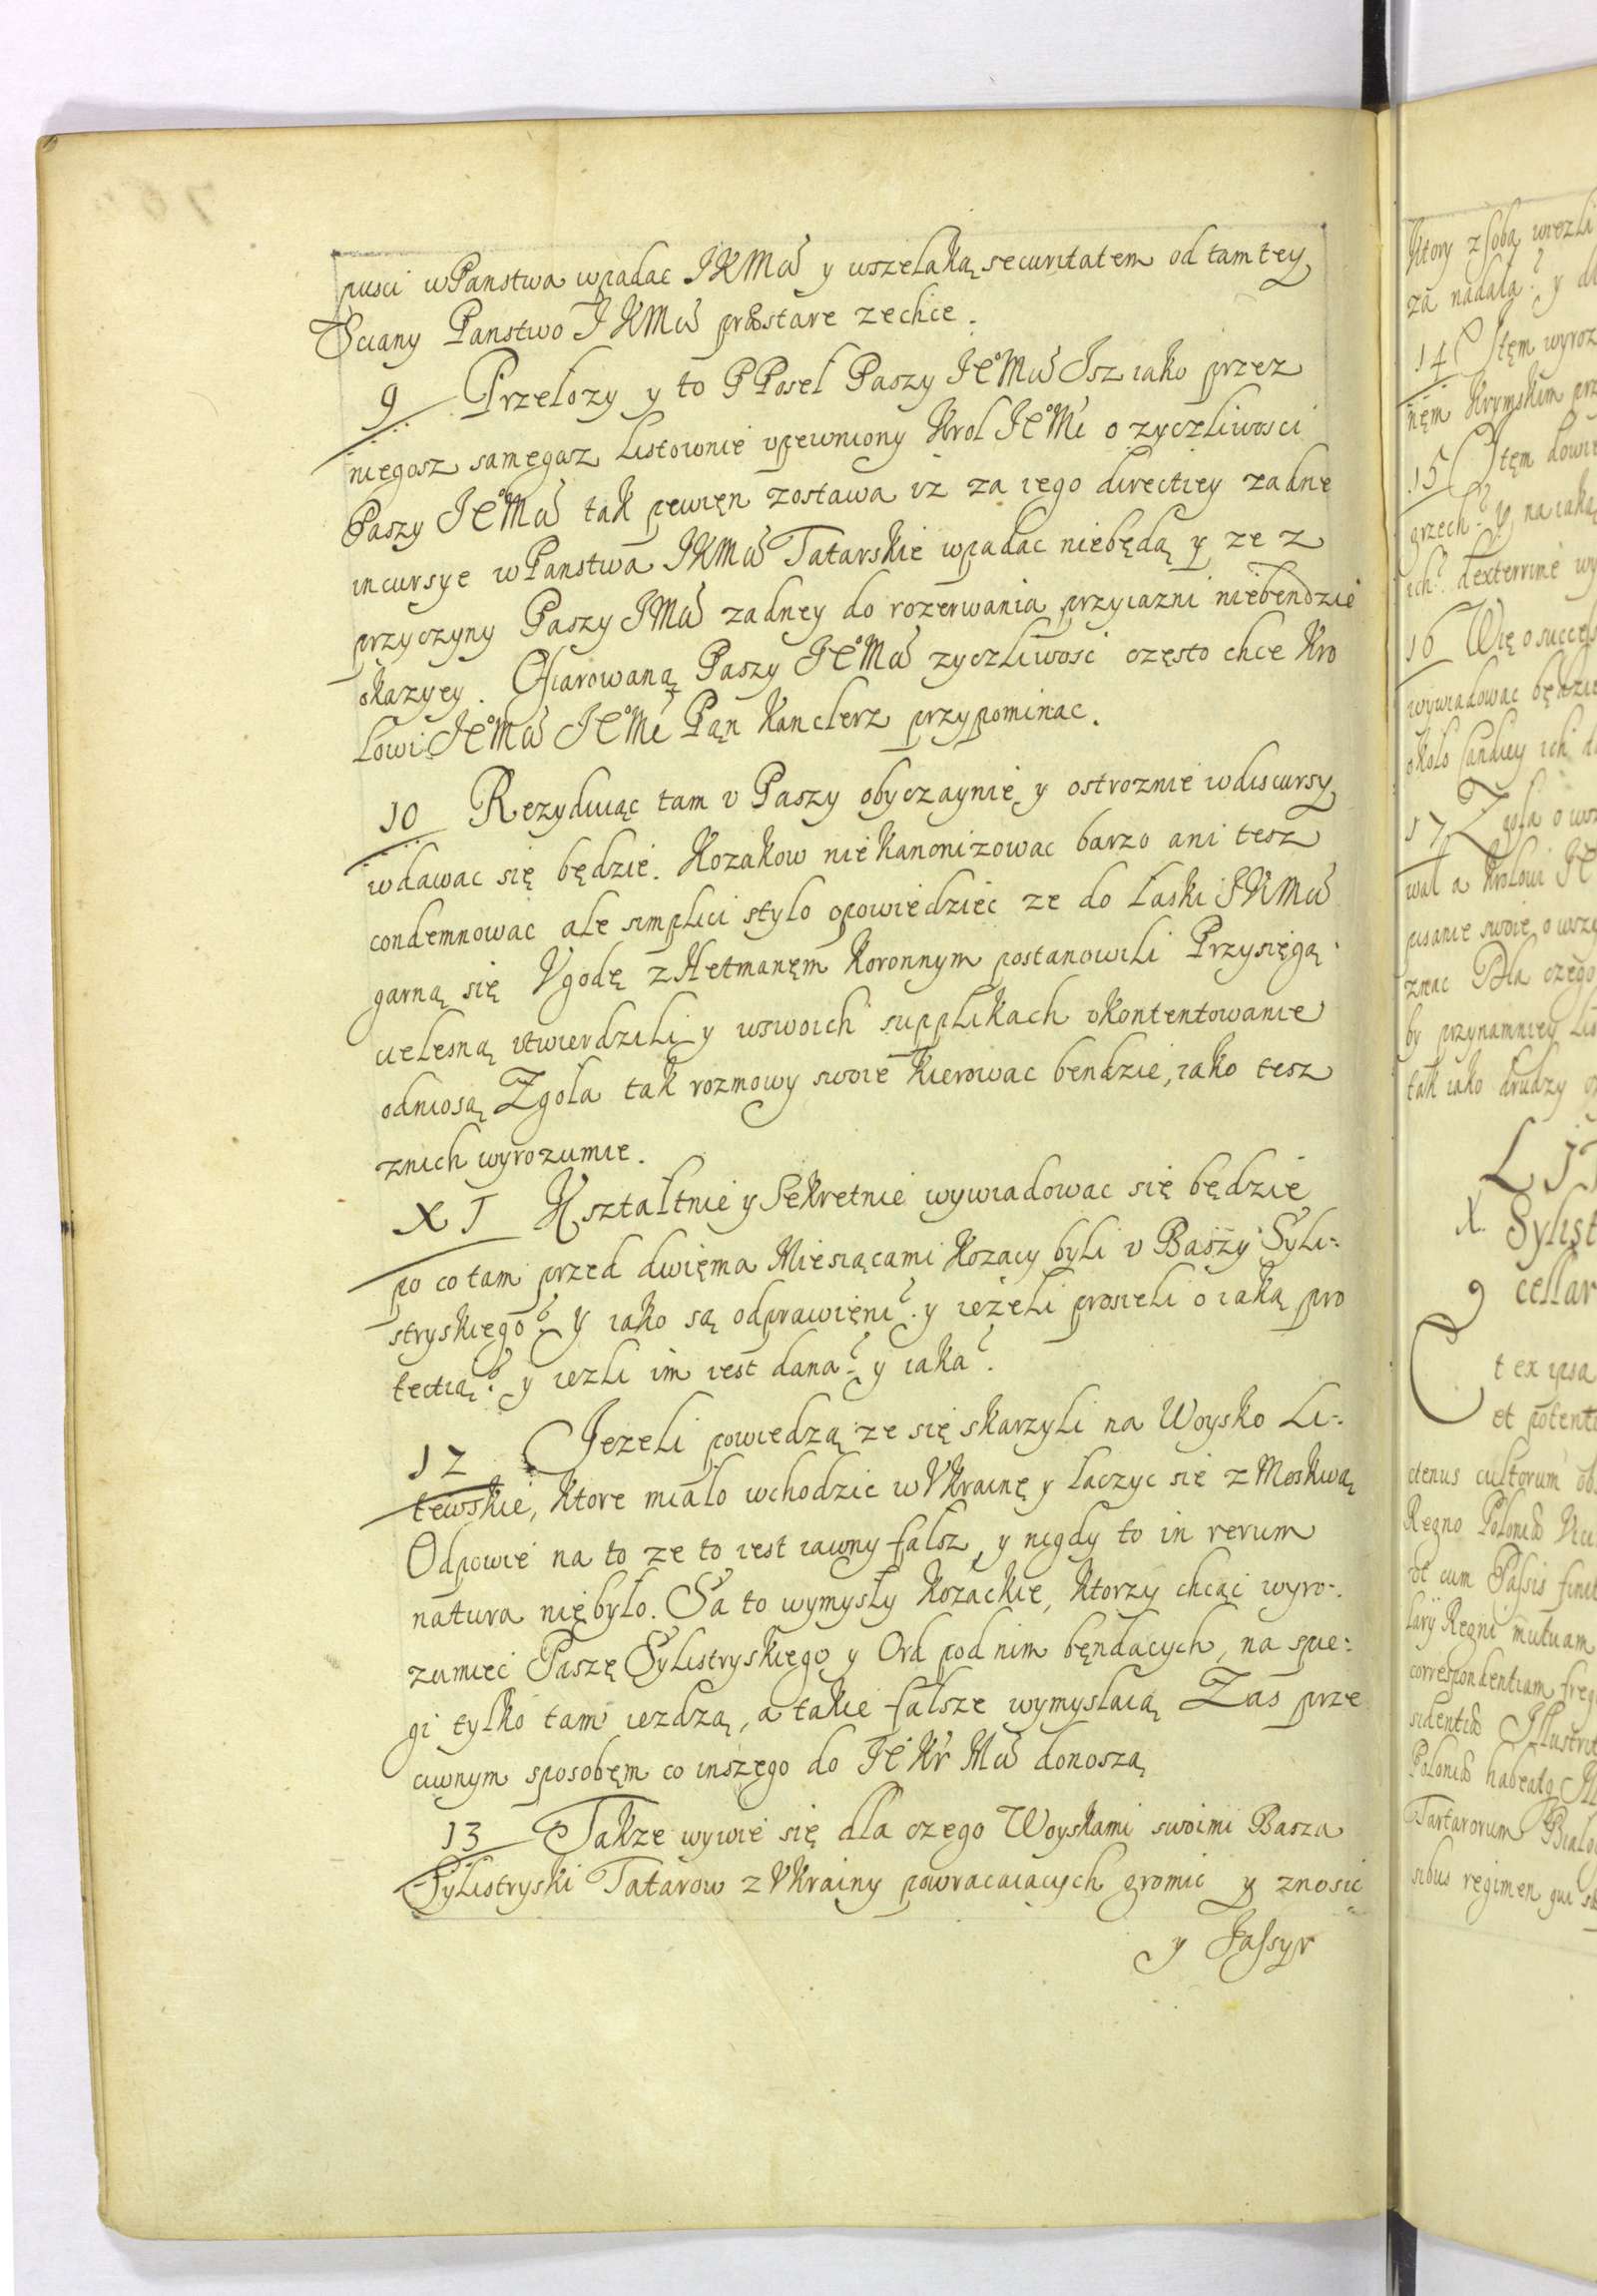 pusci w Panstwa wpadac JKMci y wszelaką securitatem od tamtey
Sciany Panstwo JKMci præstare zechce.
9 Przełozy y to P Poseł Paszy JeoMci Isz iako przez
niegosz samegosz listownie vpewniony Krol JeoMć o zyczliwosci
Paszy JeoMci tak pewięn zostawa iz za iego directiey zadne
incursye w Panstwa JKMci Tatarskie wpadac niebędą y ze z
przyczyny Paszy JMci zadney do rozerwania przyiazni niebendzie
okazyey. Ofiarowaną Paszy JeoMci zyczliwosc często chce Kro
lowi JeoMci JeoMć Pąn Kanclerz przypominac.
10 Rezyduiąc tam v Paszy obyczaynie y ostroznie w discursy
wdawac się będzie. Kozakow nie kanonizowac barzo ani tesz
condemnowac ale simplici stylo opowiedziec ze do łaski JKMci
garną się Vgodę z Hetmanęm Koronnym postanowili Przysięgą
cielesną vtwierdzili y wswoich supplikach vkontentowanie
odniosą Zgoła tak rozmowy swoie kierowac bendzie, iako tesz
znich wyrozumie.
XI Kształtnie y Sekretnie wywiadowac się będzie
po co tam przed dwięma Miesiącami Kozacy byli v Baszy Syli-
stryskiego? Y iako są odprawięni? y iezeli prosieli o iaką pro
tectią? y iezli im iest dana? y iaka?
12 Jezeli powiedzą ze się skarzyli na Woysko Li-
tewskie, ktore miało wchodzic w Vkrainę y laczyc się z Moskwą
Odpowie na to ze to iest iawny falsz, y nigdy to in rerum
natura niębyło. Są to wymysły kozackie, ktorzy chcąc wyro-
zumiec Paszę Sylistryskiego y Ord pod nim będących, na spie-
gi tylko tam iezdzą, a takie falsze wymyslaią Zas prze
ciwnym sposobęm co inszęgo do Je Kr Mci donoszą
13 Takze wywie się dla czego Woyskami swoimi Basza
Sylistryski Tatarow z Vkrainy powracaiących gromic y znosic
y Jassyr
Ktory z sobą wiezli
za nadałą? y
14 Item wyroz
nęm Krymskim prz
15 Item dowie
grzech? y na iaką
ich? dexterrine wy
16 Wię o success
wywiadowac będzie
około ich
17 Zgoła o wsz
wał a Krolowi Je
pisanie swoie o wszy
znac Dla czego
by przynamniey lis
tak iako drudzy
LIT
X. Sylist
9 cellar
t ex ipsa
et potenti
ctenus cultorum ob
Regno Poloniæ
vt cum Passis finit
larÿ Regni mutuam
correspondentiam freq
sidentiæ Illustris
Poloniæ habeatq
Tartarorum Bialo
sibus regimen qui